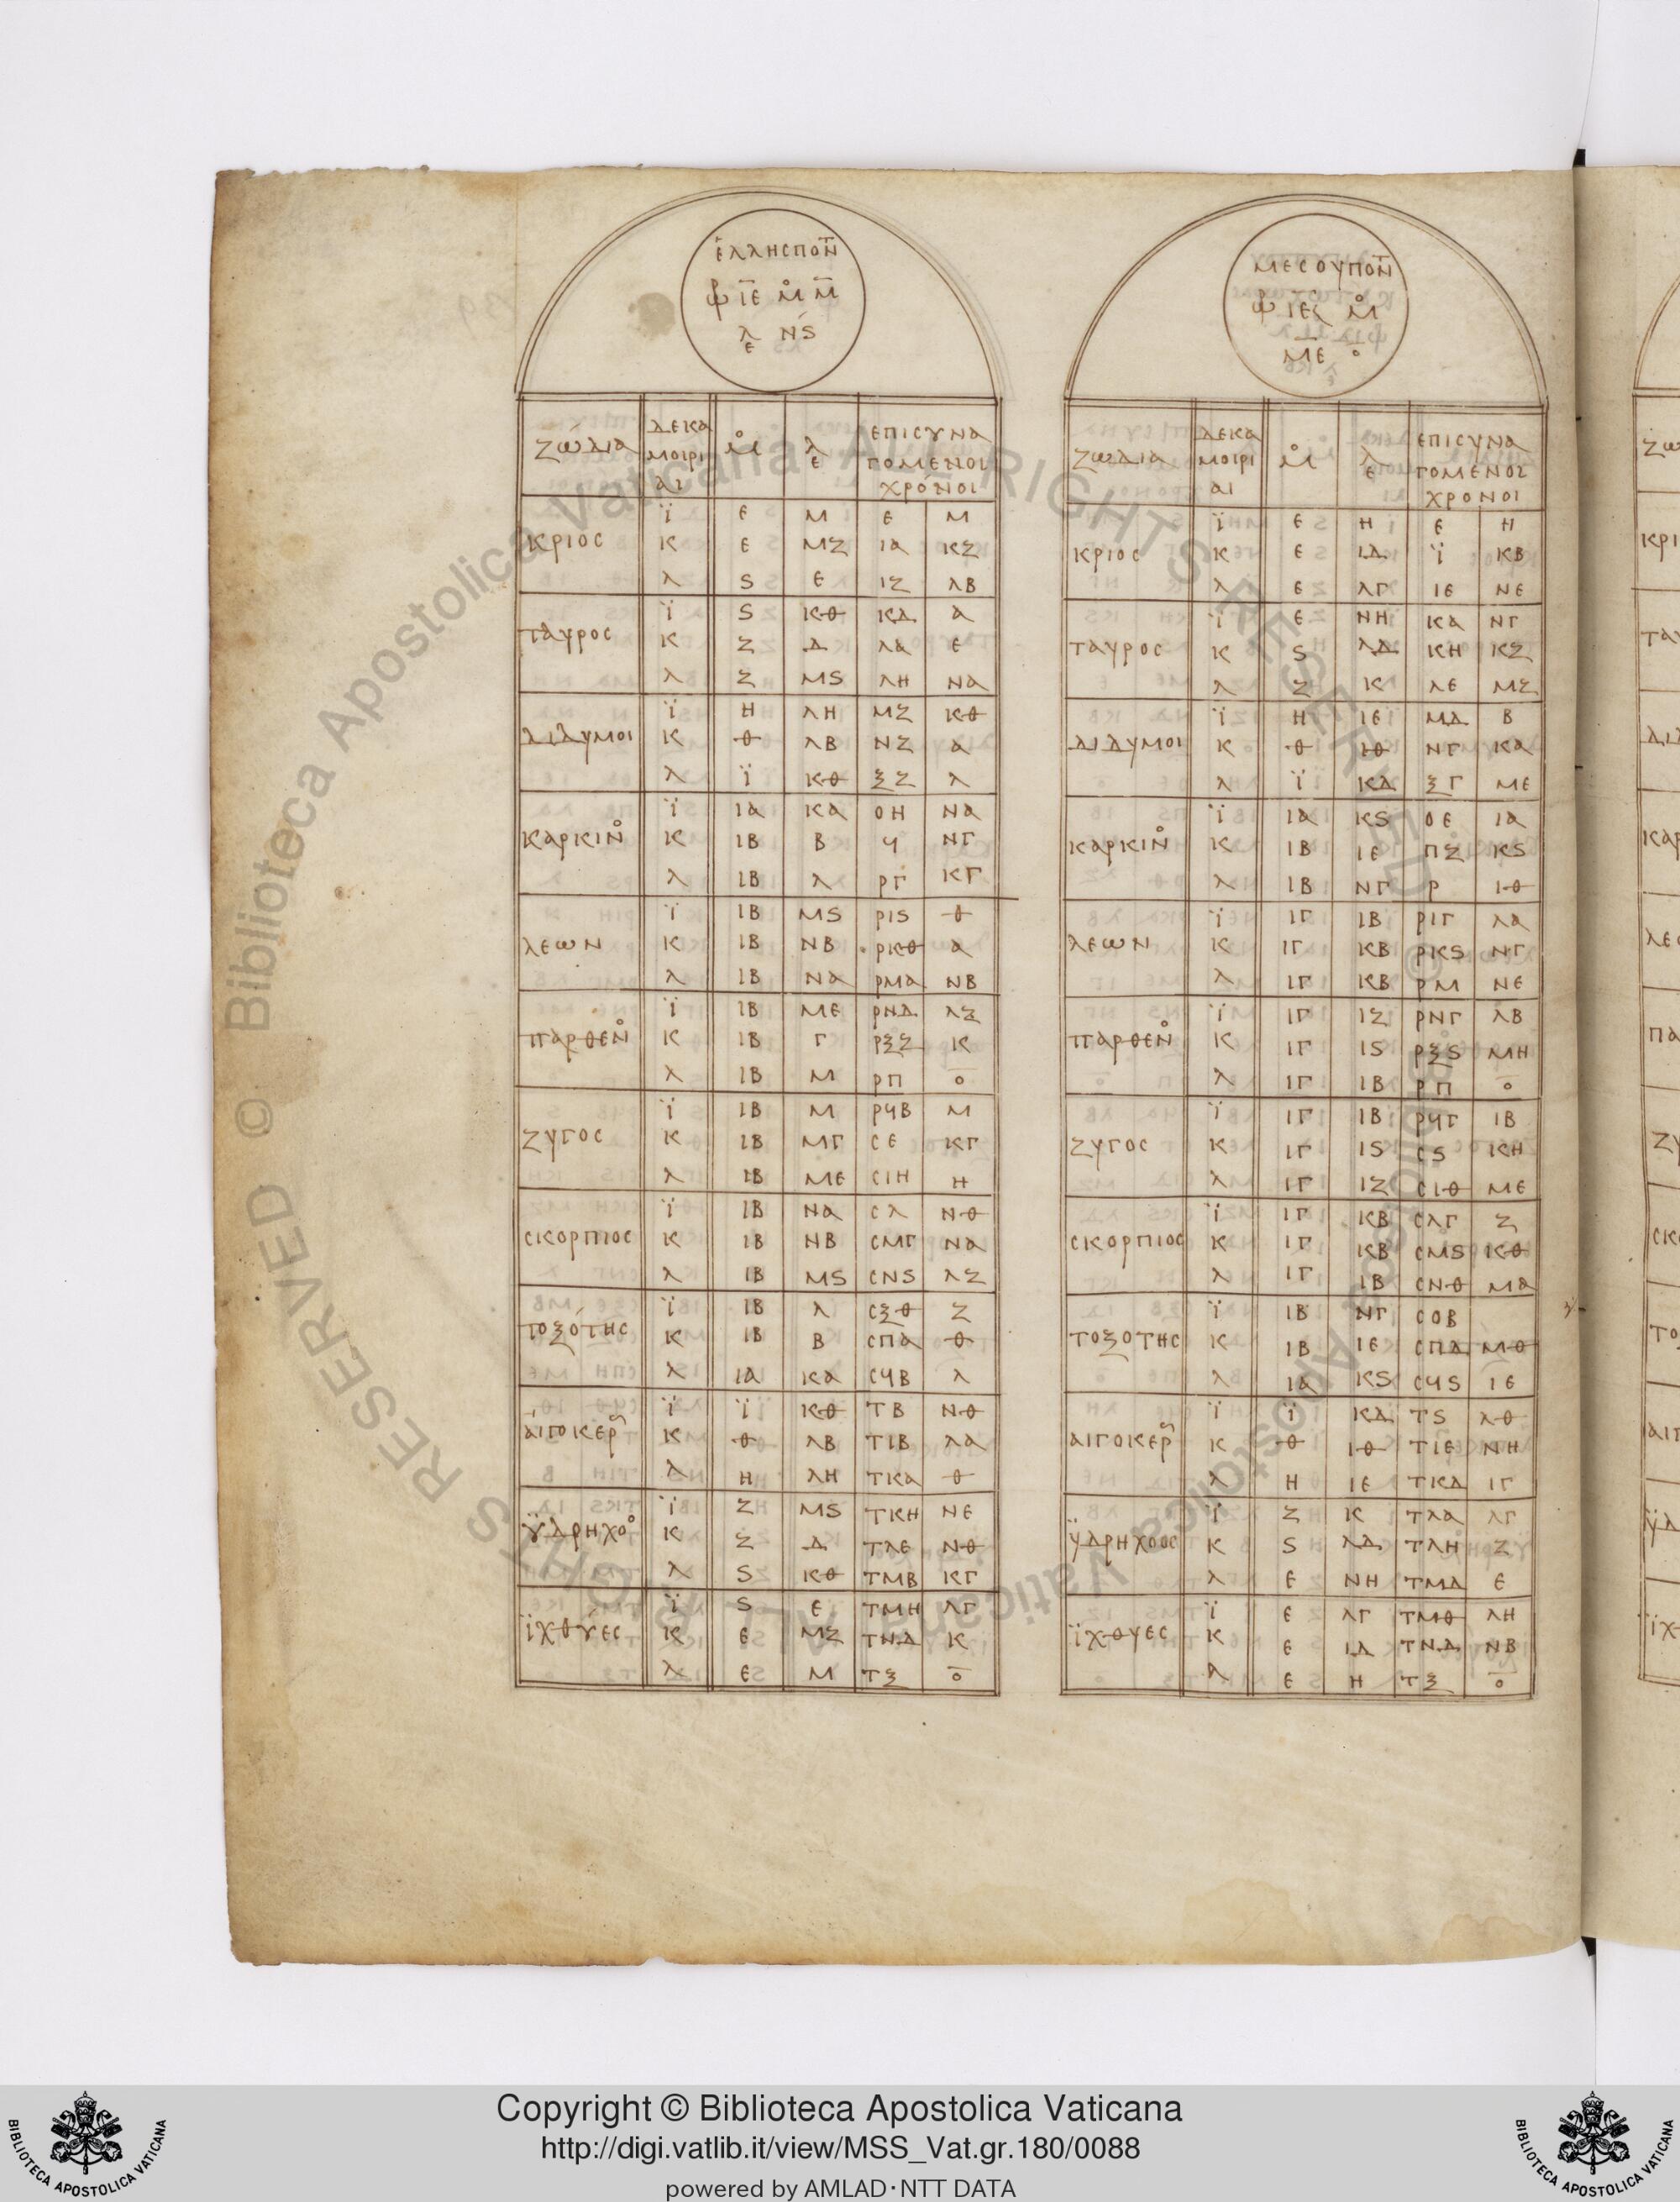 ἙΛΛΗCΠΟΝΤ
ω ΙΕ Μ° Μ
ΛΕ ΝS
ΖώΔΙΑ ΔΕΚΑ ΜΟΙΡΙ ΑΙ Μ° ΛΕ ΕΠΙCΥΝΑ ΓΟΜΕΝΟΙ ΧΡόΝΟΙ
ΚΡΙΟC Ϊ Ε Μ Ε Μ
Κ Ε ΜΖ ΙΑ ΚΖ
Λ S Ε ΙΖ ΛΒ
ΤΑΥΡΟC Ϊ S ΚΘ ΚΔ Α
Κ Ζ Δ ΛΑ Ε
Λ Ζ ΜS ΛΗ ΝΑ
ΔΙΔΥΜΟΙ Ϊ Η ΛΗ ΜΖ ΚΘ
Κ Θ ΛΒ ΝΖ Α
Λ Ϊ ΚΘ ΞΖ Λ
ΚΑΡΚΙΝ° Ϊ ΙΑ ΚΑ ΟΗ ΝΑ
Κ ΙΒ Β Ϟ ΝΓ
Λ ΙΒ Λ ΡΓ ΚΓ
ΛΕΩΝ Ϊ ΙΒ ΜS ΡΙS Θ
Κ ΙΒ ΝΒ ΡΚΘ Α
Λ ΙΒ ΝΑ ΡΜΑ ΝΒ
ΠΑΡΘΕΝ° Ϊ ΙΒ ΜΕ ΡΝΔ ΛΖ
Κ ΙΒ Γ ΡΞΖ Κ
Λ ΙΒ Μ ΡΠ ο
ΖΥΓΟC Ϊ ΙΒ Μ ΡϞΒ Μ
Κ ΙΒ ΜΓ CΕ ΚΓ
Λ ΙΒ ΜΕ CΙΗ Η
CΚΟΡΠΙΟC Ϊ ΙΒ ΝΑ CΛ ΝΘ
Κ ΙΒ ΝΒ CΜΓ ΝΑ
Λ ΙΒ ΜS CΝS ΛΖ
ΤΟΞόΤΗC Ϊ ΙΒ Λ CΞΘ Ζ
Κ ΙΒ Β CΠΑ Θ
Λ ΙΑ ΚΑ CϞΒ Λ
ΑἰΓΟΚΕΡ Ϊ Ϊ ΚΘ ΤΒ ΝΘ
Κ Θ ΛΒ ΤΙΒ ΛΑ
Λ Η ΛΗ ΤΚΑ Θ
ΫΔΡΗΧΟ° Ϊ Ζ ΜS ΤΚΗ ΝΕ
Κ Ζ Δ ΤΛΕ ΝΘ
Λ S ΚΘ ΤΜΒ ΚΓ
ΪΧΘύΕC Ϊ S Ε ΤΜΗ ΛΓ
Κ Ε ΜΖ ΤΝΔ Κ
Λ Ε Μ ΤΞ ο
ΜΕCΟΥΠΟΝΤ
ΙΕ Μ°
ΜΕ ο
ΖΩΔΙΑ ΔΕΚΑ ΜΟΙΡΙ ΑΙ Μ° ΛΕ ΕΠΙCΥΝΑ ΓΟΜΕΝΟΙ ΧΡΟΝΟΙ
ΚΡΙΟC Ϊ Ε Η Ε Η
Κ Ε ΙΔ Ϊ ΚΒ
Λ Ε ΛΓ ΙΕ ΝΕ
ΤΑΥΡΟC Ϊ Ε ΝΗ ΚΑ ΝΓ
Κ S ΛΔ ΚΗ ΚΖ
Λ Ζ Κ ΛΕ ΜΖ
ΔΙΔΥΜΟΙ Ϊ Η ΙΕ ΜΔ Β
Κ Θ ΙΘ ΝΓ ΚΑ
Λ Ϊ ΚΔ ΞΓ ΜΕ
ΚΑΡΚΙΝ° Ϊ ΙΑ ΚS ΟΕ ΙΑ
Κ ΙΒ ΙΕ ΠΖ ΚS
Λ ΙΒ ΝΓ Ρ ΙΘ
ΛΕΩΝ Ϊ ΙΓ ΙΒ ΡΙΓ ΛΑ
Κ ΙΓ ΚΒ ΡΚS ΝΓ
Λ ΙΓ ΚΒ ΡΜ ΝΕ
ΠΑΡΘΕΝ° Ϊ ΙΓ ΙΖ ΡΝΓ ΛΒ
Κ ΙΓ ΙS ΡΞS ΜΗ
Λ ΙΓ ΙΒ ΡΠ ο
ΖΥΓΟC Ϊ ΙΓ ΙΒ ΡϞΓ ΙΒ
Κ ΙΓ ΙS CS ΚΗ
Λ ΙΓ ΙΖ CΙΘ ΜΕ
CΚΟΡΠΙΟC Ϊ ΙΓ ΚΒ CΛΓ Ζ
Κ ΙΓ ΚΒ CΜS ΚΘ
Λ ΙΓ ΙΒ CΝΘ ΜΑ
ΤΟΞΟΤΗC Ϊ ΙΒ ΝΓ CΟΒ
Κ ΙΒ ΙΕ CΠΔ ΜΘ
Λ ΙΑ ΚS CϞS ΙΕ
ΑΙΓΟΚΕΡ Ϊ Ϊ ΚΔ ΤS ΛΘ
Κ Θ ΙΘ ΤΙΕ ΝΗ
Λ Η ΙΕ ΤΚΔ ΙΓ
ΫΔΡΗΧΟΟC Ϊ Ζ Κ ΤΛΑ ΛΓ
Κ S ΛΔ ΤΛΗ Ζ
Λ Ε ΝΗ ΤΜΔ Ε
ΪΧΘΥΕC Ϊ Ε ΛΓ ΤΜΘ ΛΗ
Κ Ε ΙΔ ΤΝΔ ΝΒ
Λ Ε Η ΤΞ ο
© Biblioteca Apostolica Vaticana ALL RIGHTS RESERVED
Copyright © Biblioteca Apostolica Vaticana
http://digi.vatlib.it/view/MSS_Vat.gr.180/0088
powered by AMLAD·NTT DATA
BIBLIOTECA APOSTOLICA VATICANA
BIBLIOTECA APOSTOLICA VATICANA